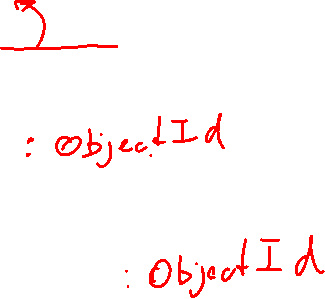 : ObjectId
: ObjectId